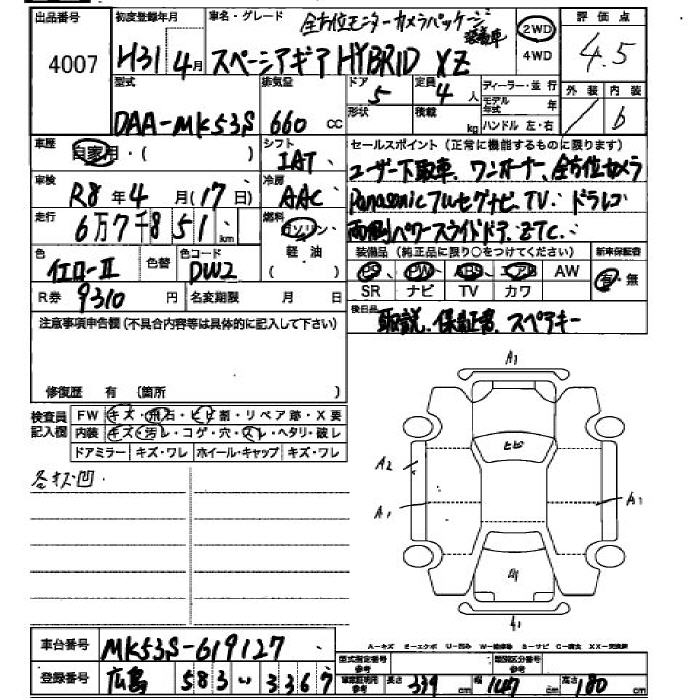 出品番号
4007
初度登録年月
H31年4月
車名・グレード
全方位モニターカメラパッケージ
装着車
スペーシアギア HYBRID XZ
2WD
4WD
評価点
4.5
型式
DAA-MK53S
排気量
660 cc
ドア
5
形状
定員
4人
積載
kg
ディーラー・並行
モデル年式 年
ハンドル 左・右
外装
内装
b
車歴
自家用・( )
シフト
IAT
セールスポイント(正常に機能するものに限ります)
ユーザー下取車、ワンオーナー、全方位カメラ
Panasonicフルセグナビ、TV・ドラレコ
両側パワースライドドア、ETC、
車検
R8年4月(17日)
冷房
AAC
走行
6万7千851km
燃料
ガソリン
軽油
( )
装備品(純正品に限り○をつけてください)
PS PW ABS エアB AW
SR ナビ TV カワ
新車保証書
有・無
色
イエローII
色替
色コード
DW2
R券 9310円
名変期限 月 日
後日品
取説、保証書、スペアキー
注意事項申告欄(不具合内容等は具体的に記入して下さい)
修復歴 有(箇所 )
検査員
記入欄
FW キズ・飛石・ヒビ割・リペア跡・X要
内装 キズ・汚レ・コゲ・穴・スレ・ヘタリ・破レ
ドアミラー キズ・ワレ ホイール・キャップ キズ・ワレ
各キズ凹
A1
ヒビ
A2
A1
A1
A1
A-キズ E-エクボ U-凹み W-補修跡 S-サビ C-腐食 XX-交換済
車台番号 MK53S-619127
登録番号 広島 583 い 3367
型式指定番号
参考
類別区分番号
参考
車庫証明用
参考
長さ 339 cm 幅 147 cm 高さ 180 cm